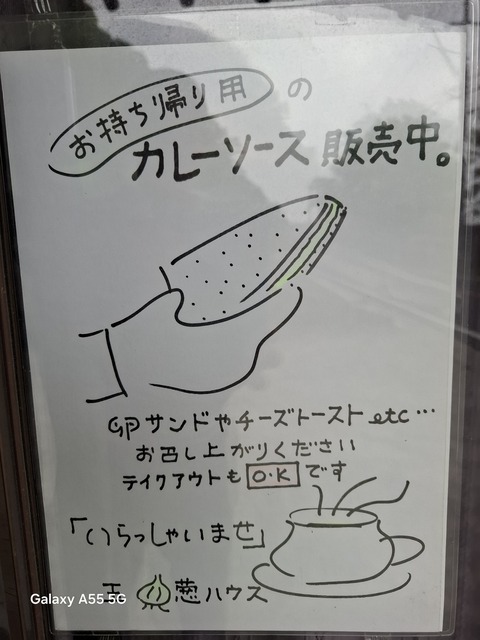 お持ち帰り用の
カレーソース販売中。
卵サンドやチーズトーストetc…
お召し上がりください
テイクアウトもO.Kです
「いらっしゃいませ」
玉葱ハウス
Galaxy A55 5G